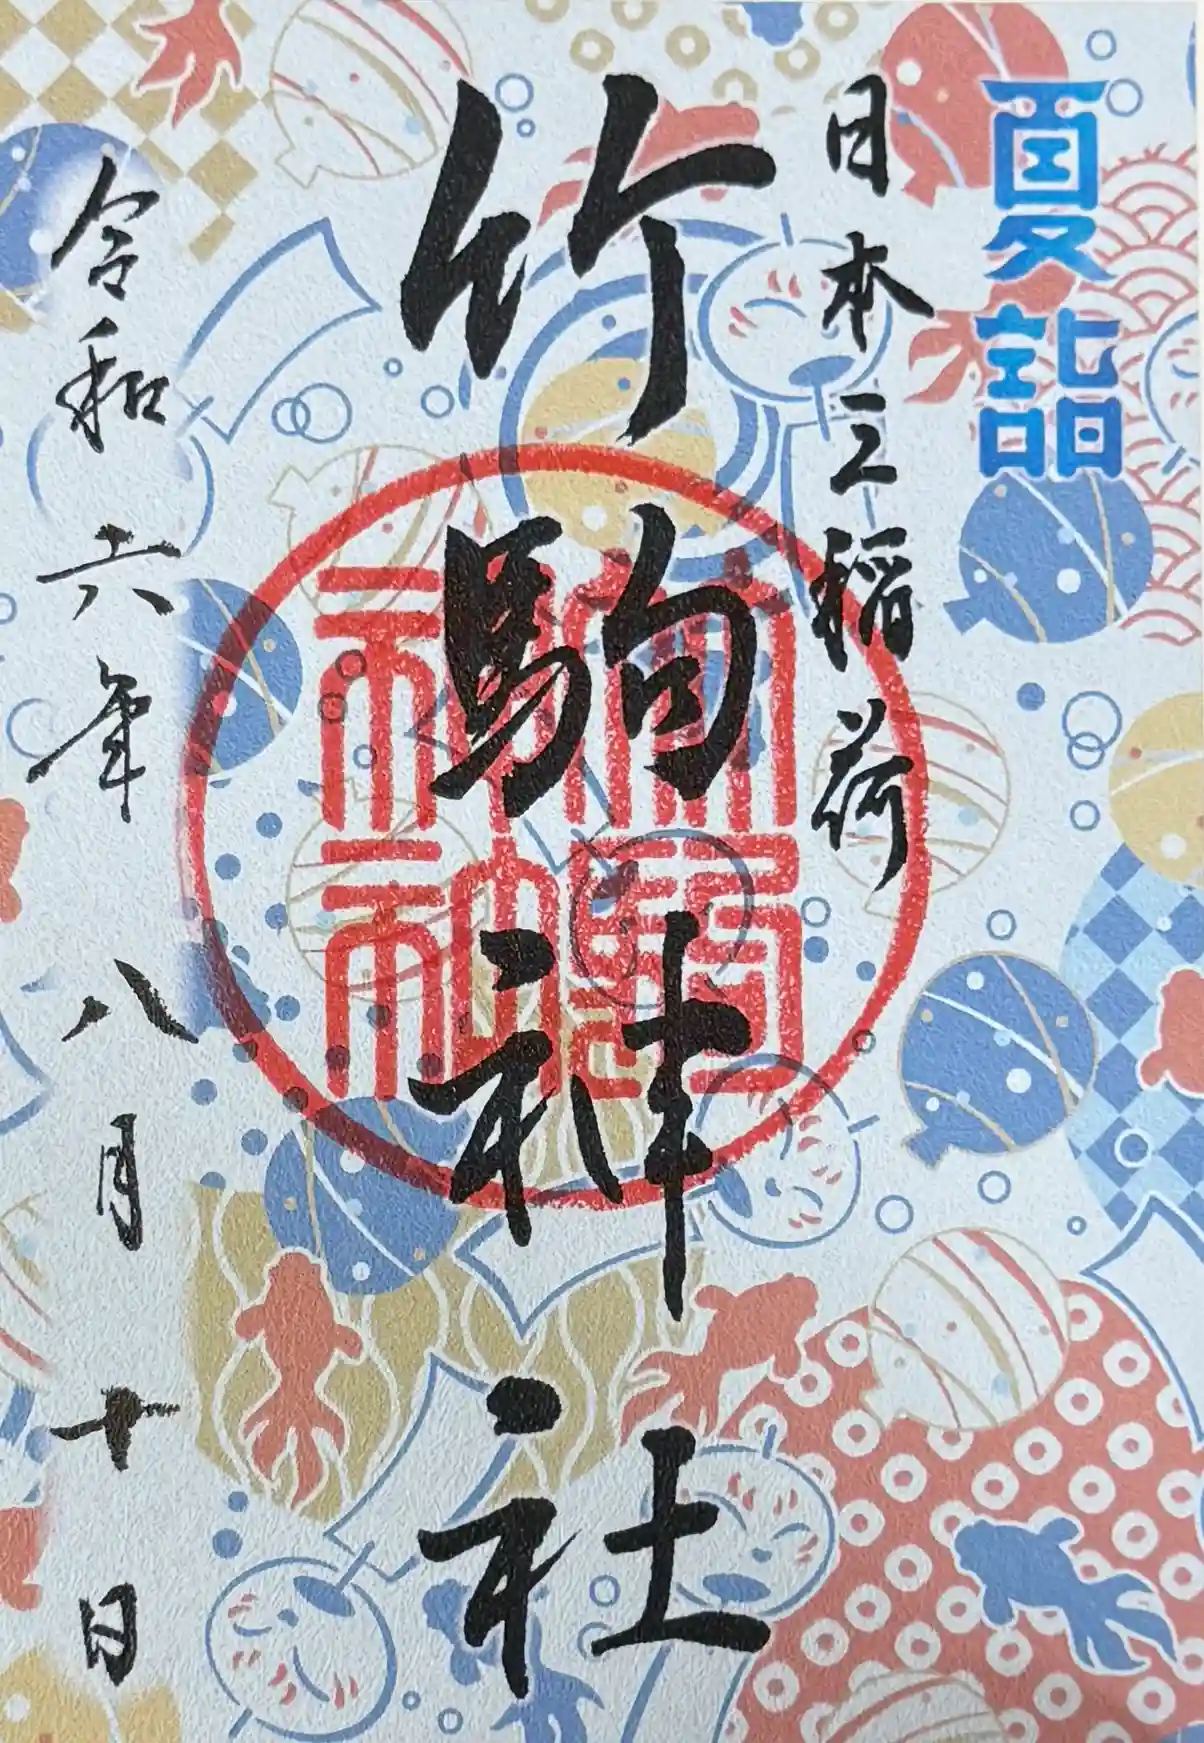 夏詣
日本三稲荷
竹駒神社
竹駒神社
令和六年八月十日